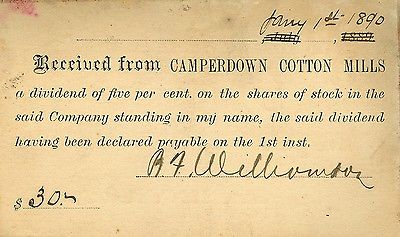 Jany 1st 1890
July, 1889
Received from CAMPERDOWN COTTON MILLS
a dividend of five per cent. on the shares of stock in the
said Company standing in my name, the said dividend
having been declared payable on the 1st inst.
B. F. Williamson
$ 30.